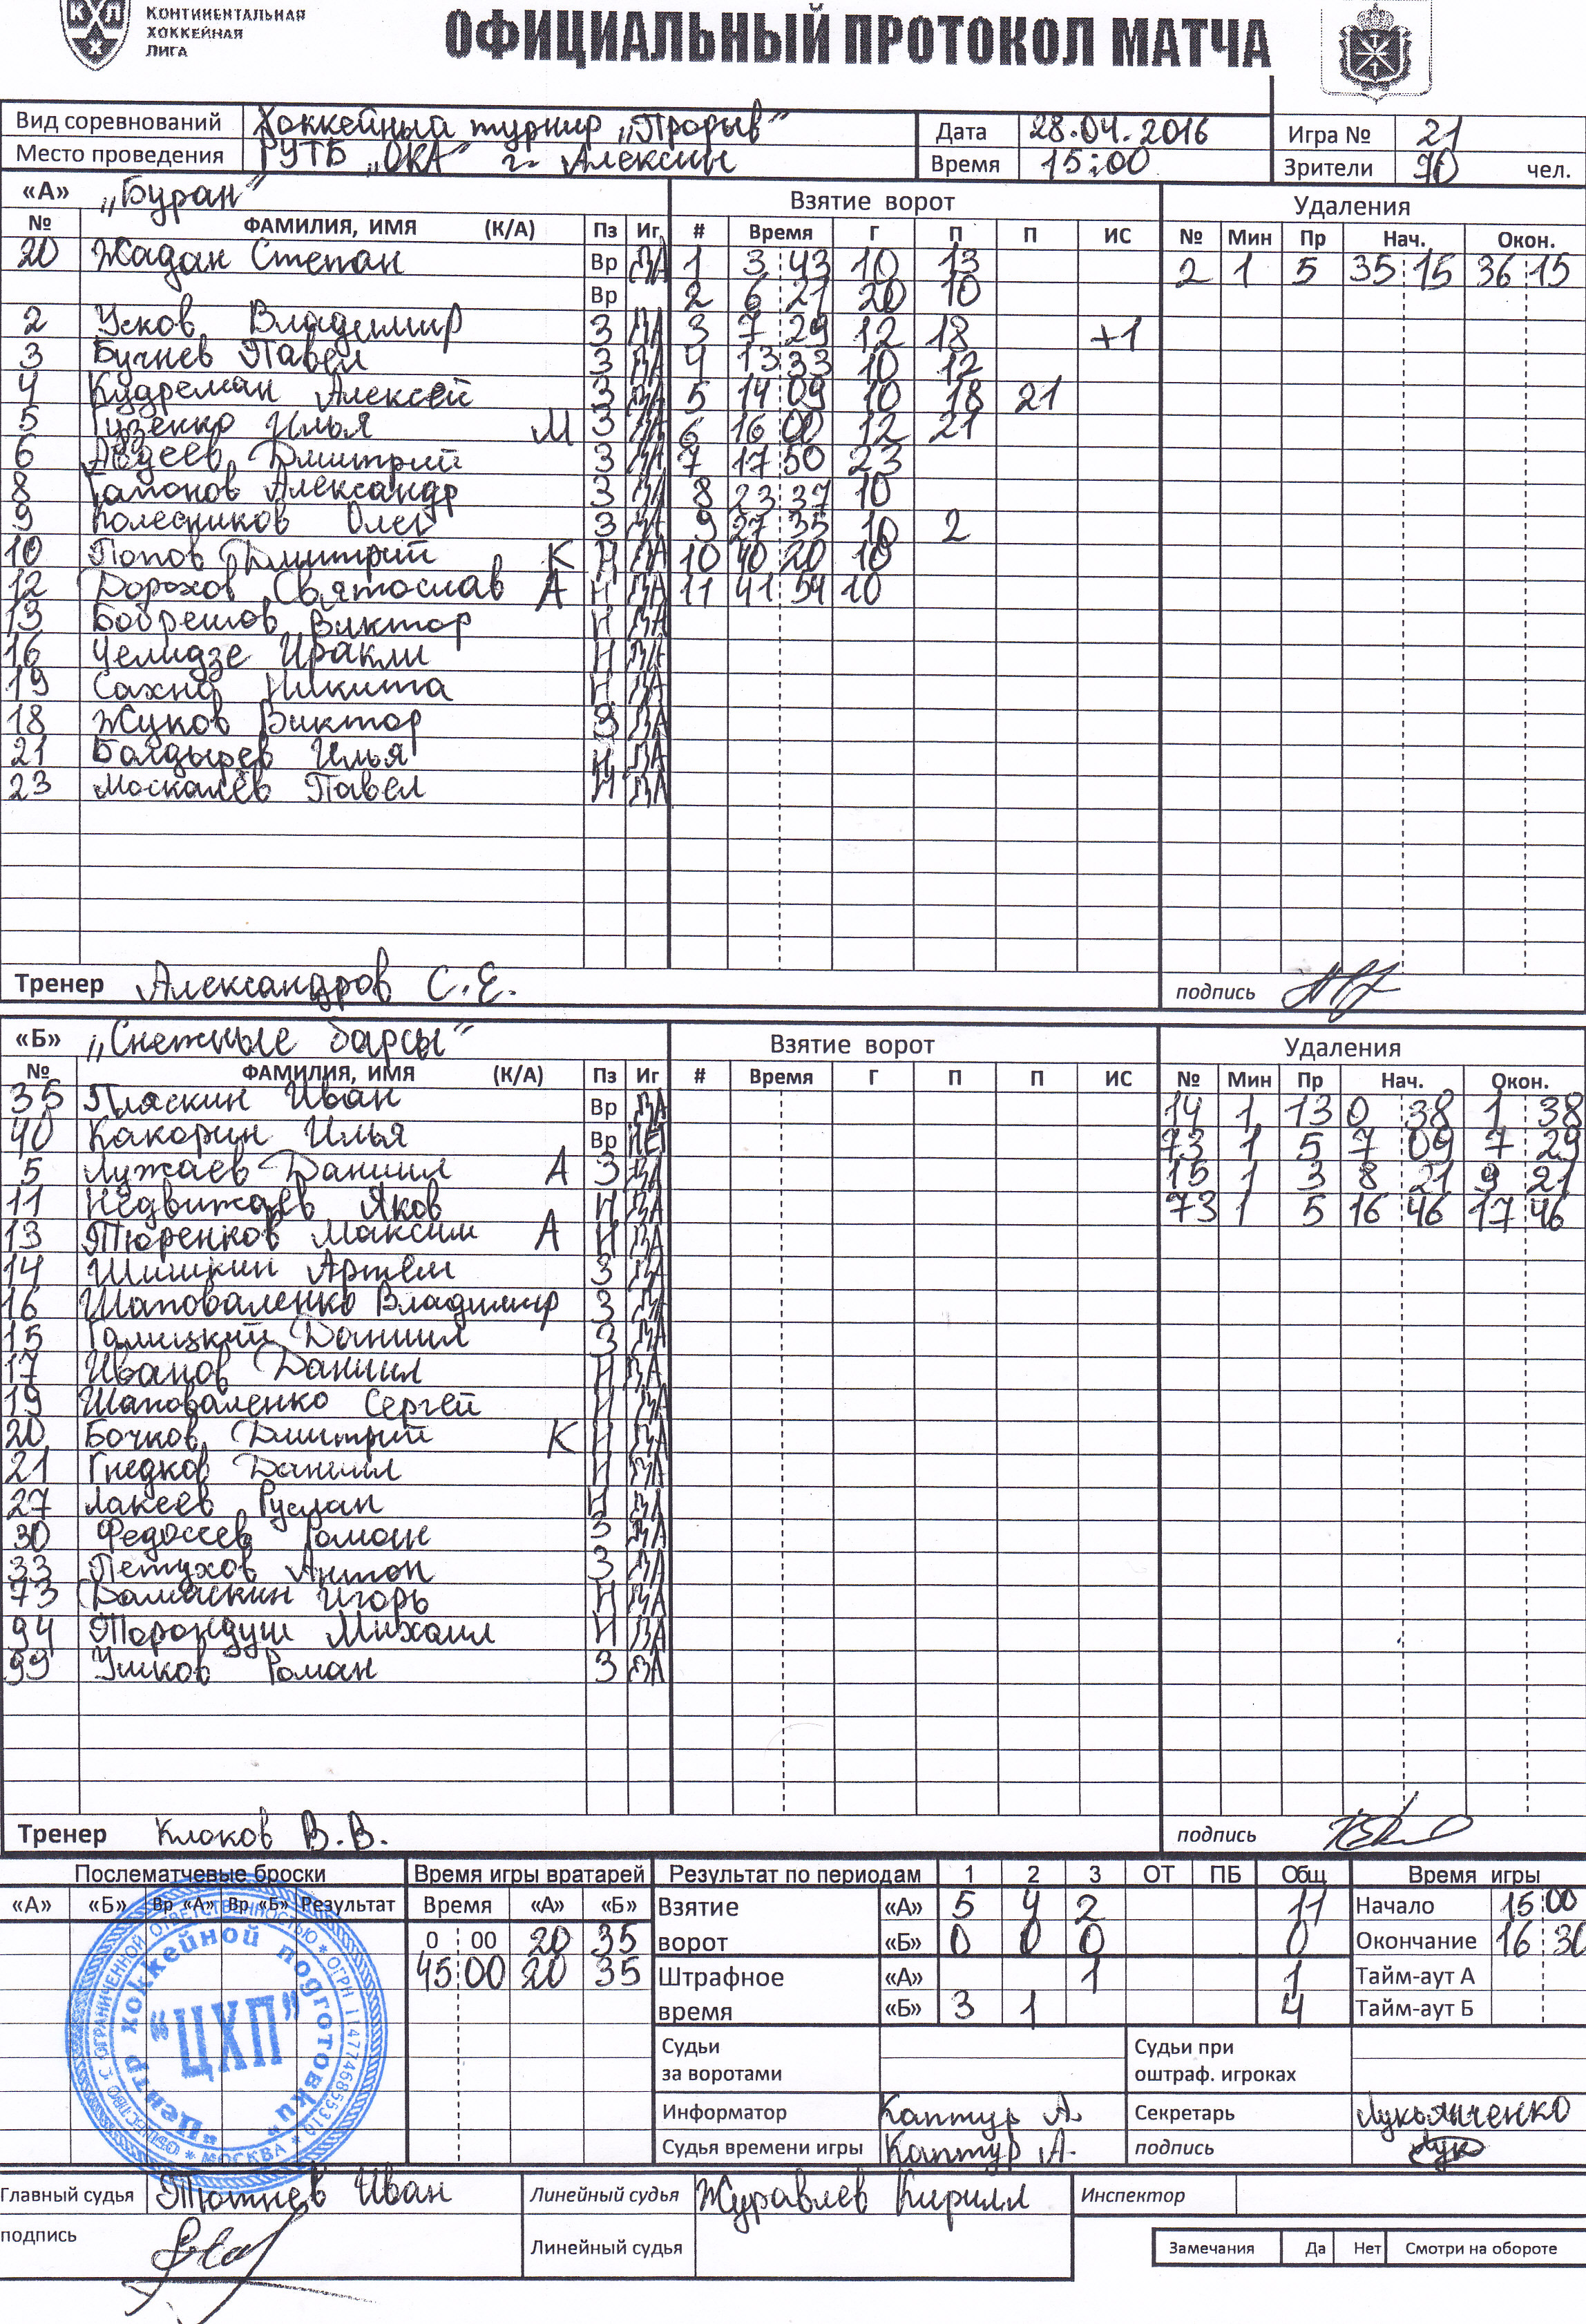 КОНТИНЕНТАЛЬНАЯ
ХОККЕЙНАЯ
ЛИГА
КХЛ
ОФИЦИАЛЬНЫЙ ПРОТОКОЛ МАТЧА
Вид соревнований Хоккейный турнир „Прорыв" Дата 28.04.2016 Игра № 21
Место проведения РУТБ „ОКА" г. Алексин Время 15:00 Зрители 70 чел.
«А» „Буран" Взятие ворот Удаления
№ ФАМИЛИЯ, ИМЯ (К/А) Пз Иг # Время Г П П ИС № Мин Пр Нач. Окон.
20 Жадан Степан Вр ДА 1 3 43 10 13 2 1 5 35 15 36 15
Вр 2 6 21 20 10
2 Усков Владимир З ДА 3 7 29 12 18 +1
3 Бучнев Павел З ДА 4 13 33 10 12
4 Кудреман Алексей З ДА 5 14 09 10 18 21
5 Гузенко Илья М З ДА 6 16 00 12 21
6 Авдеев Дмитрий З ДА 7 17 50 23
8 Гапонов Александр З ДА 8 23 37 10
9 Колесников Олег З ДА 9 27 35 10 2
10 Попов Дмитрий К Н ДА 10 40 20 10
12 Дорохов Святослав А Н ДА 11 41 54 10
13 Бобрешов Виктор Н ДА
16 Челидзе Иракли Н ДА
19 Сахно Никита Н ДА
18 Жуков Виктор З ДА
21 Болдырев Илья Н ДА
23 Москалёв Павел Н ДА
Тренер Александров С.Е. подпись
«Б» „Снежные барсы" Взятие ворот Удаления
№ ФАМИЛИЯ, ИМЯ (К/А) Пз Иг # Время Г П П ИС № Мин Пр Нач. Окон.
35 Пляскин Иван Вр ДА 14 1 13 0 38 1 38
40 Какорин Илья Вр НЕТ 73 1 5 7 09 7 29
5 Лужаев Даниил А З ДА 15 1 3 8 21 9 21
11 Недвижаев Яков Н ДА 73 1 5 16 46 17 46
13 Тюренков Максим А Н ДА
14 Шишкин Артем З ДА
16 Шаповаленко Владимир З ДА
15 Галицкий Даниил З ДА
17 Иванов Даниил Н ДА
19 Шаповаленко Сергей Н ДА
20 Бочков Дмитрий К Н ДА
21 Гнедков Даниил Н ДА
27 Лакеев Руслан Н ДА
30 Федосеев Роман З ДА
33 Петухов Антон З ДА
73 Дамаскин Игорь Н ДА
94 Торондуш Михаил Н ДА
99 Ушков Роман З ДА
Тренер Клоков В.В. подпись
Послематчевые броски Время игры вратарей Результат по периодам 1 2 3 ОТ ПБ Общ Время игры
«А» «Б» Вр «А» Вр «Б» Результат Время «А» «Б» Взятие «А» 5 4 2 11 Начало 15 00
0 00 20 35 ворот «Б» 0 0 0 0 Окончание 16 30
45 00 20 35 Штрафное «А» 1 1 Тайм-аут А
время «Б» 3 1 4 Тайм-аут Б
Судьи Судьи при
за воротами оштраф. игроках
Информатор Каптур А. Секретарь Лукьянченко
Судья времени игры Каптур А. подпись Лук
ОБЩЕСТВО С ОГРАНИЧЕННОЙ ОТВЕТСТВЕННОСТЬЮ * ОГРН 1147746855310 * МОСКВА *
„Центр хоккейной подготовки"
"ЦХП"
Главный судья Тютнев Иван Линейный судья Журавлев Кирилл Инспектор
подпись Линейный судья Замечания Да Нет Смотри на обороте